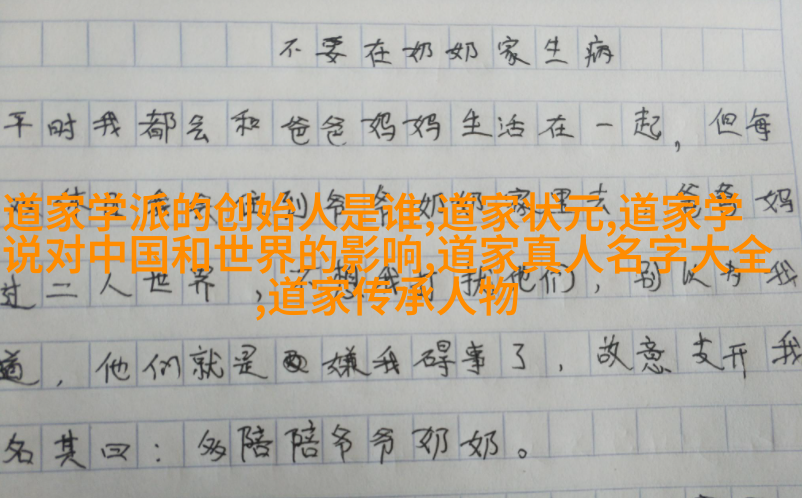 不要在奶奶家生病
平时我都会和爸爸妈妈生活在一起，但每
道家学派的创始人是谁,道家状元,道家学
说对中国和世界的影响,道家真人名字大全
,道家传承人物
到爷爷奶奶家里去 爸爸妈
过二人世界，不想我打扰他们，别以为我
道，他们就是嫌我碍事了，故意支开我
名其曰：多陪陪爷爷奶奶。